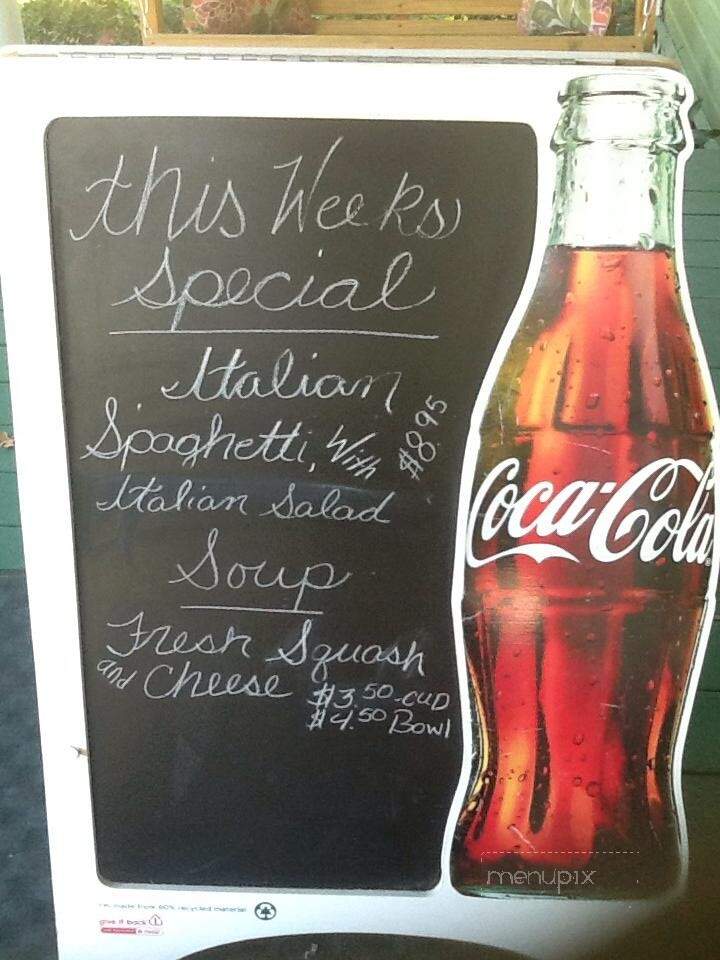 this Weeks
Special
Italian
Spaghetti, With $8.95
Italian Salad
Soup
Fresh Squash
and Cheese $3.50-cup
$4.50 Bowl
Coca-Cola
menupix
made from 60% recycled material
give it back